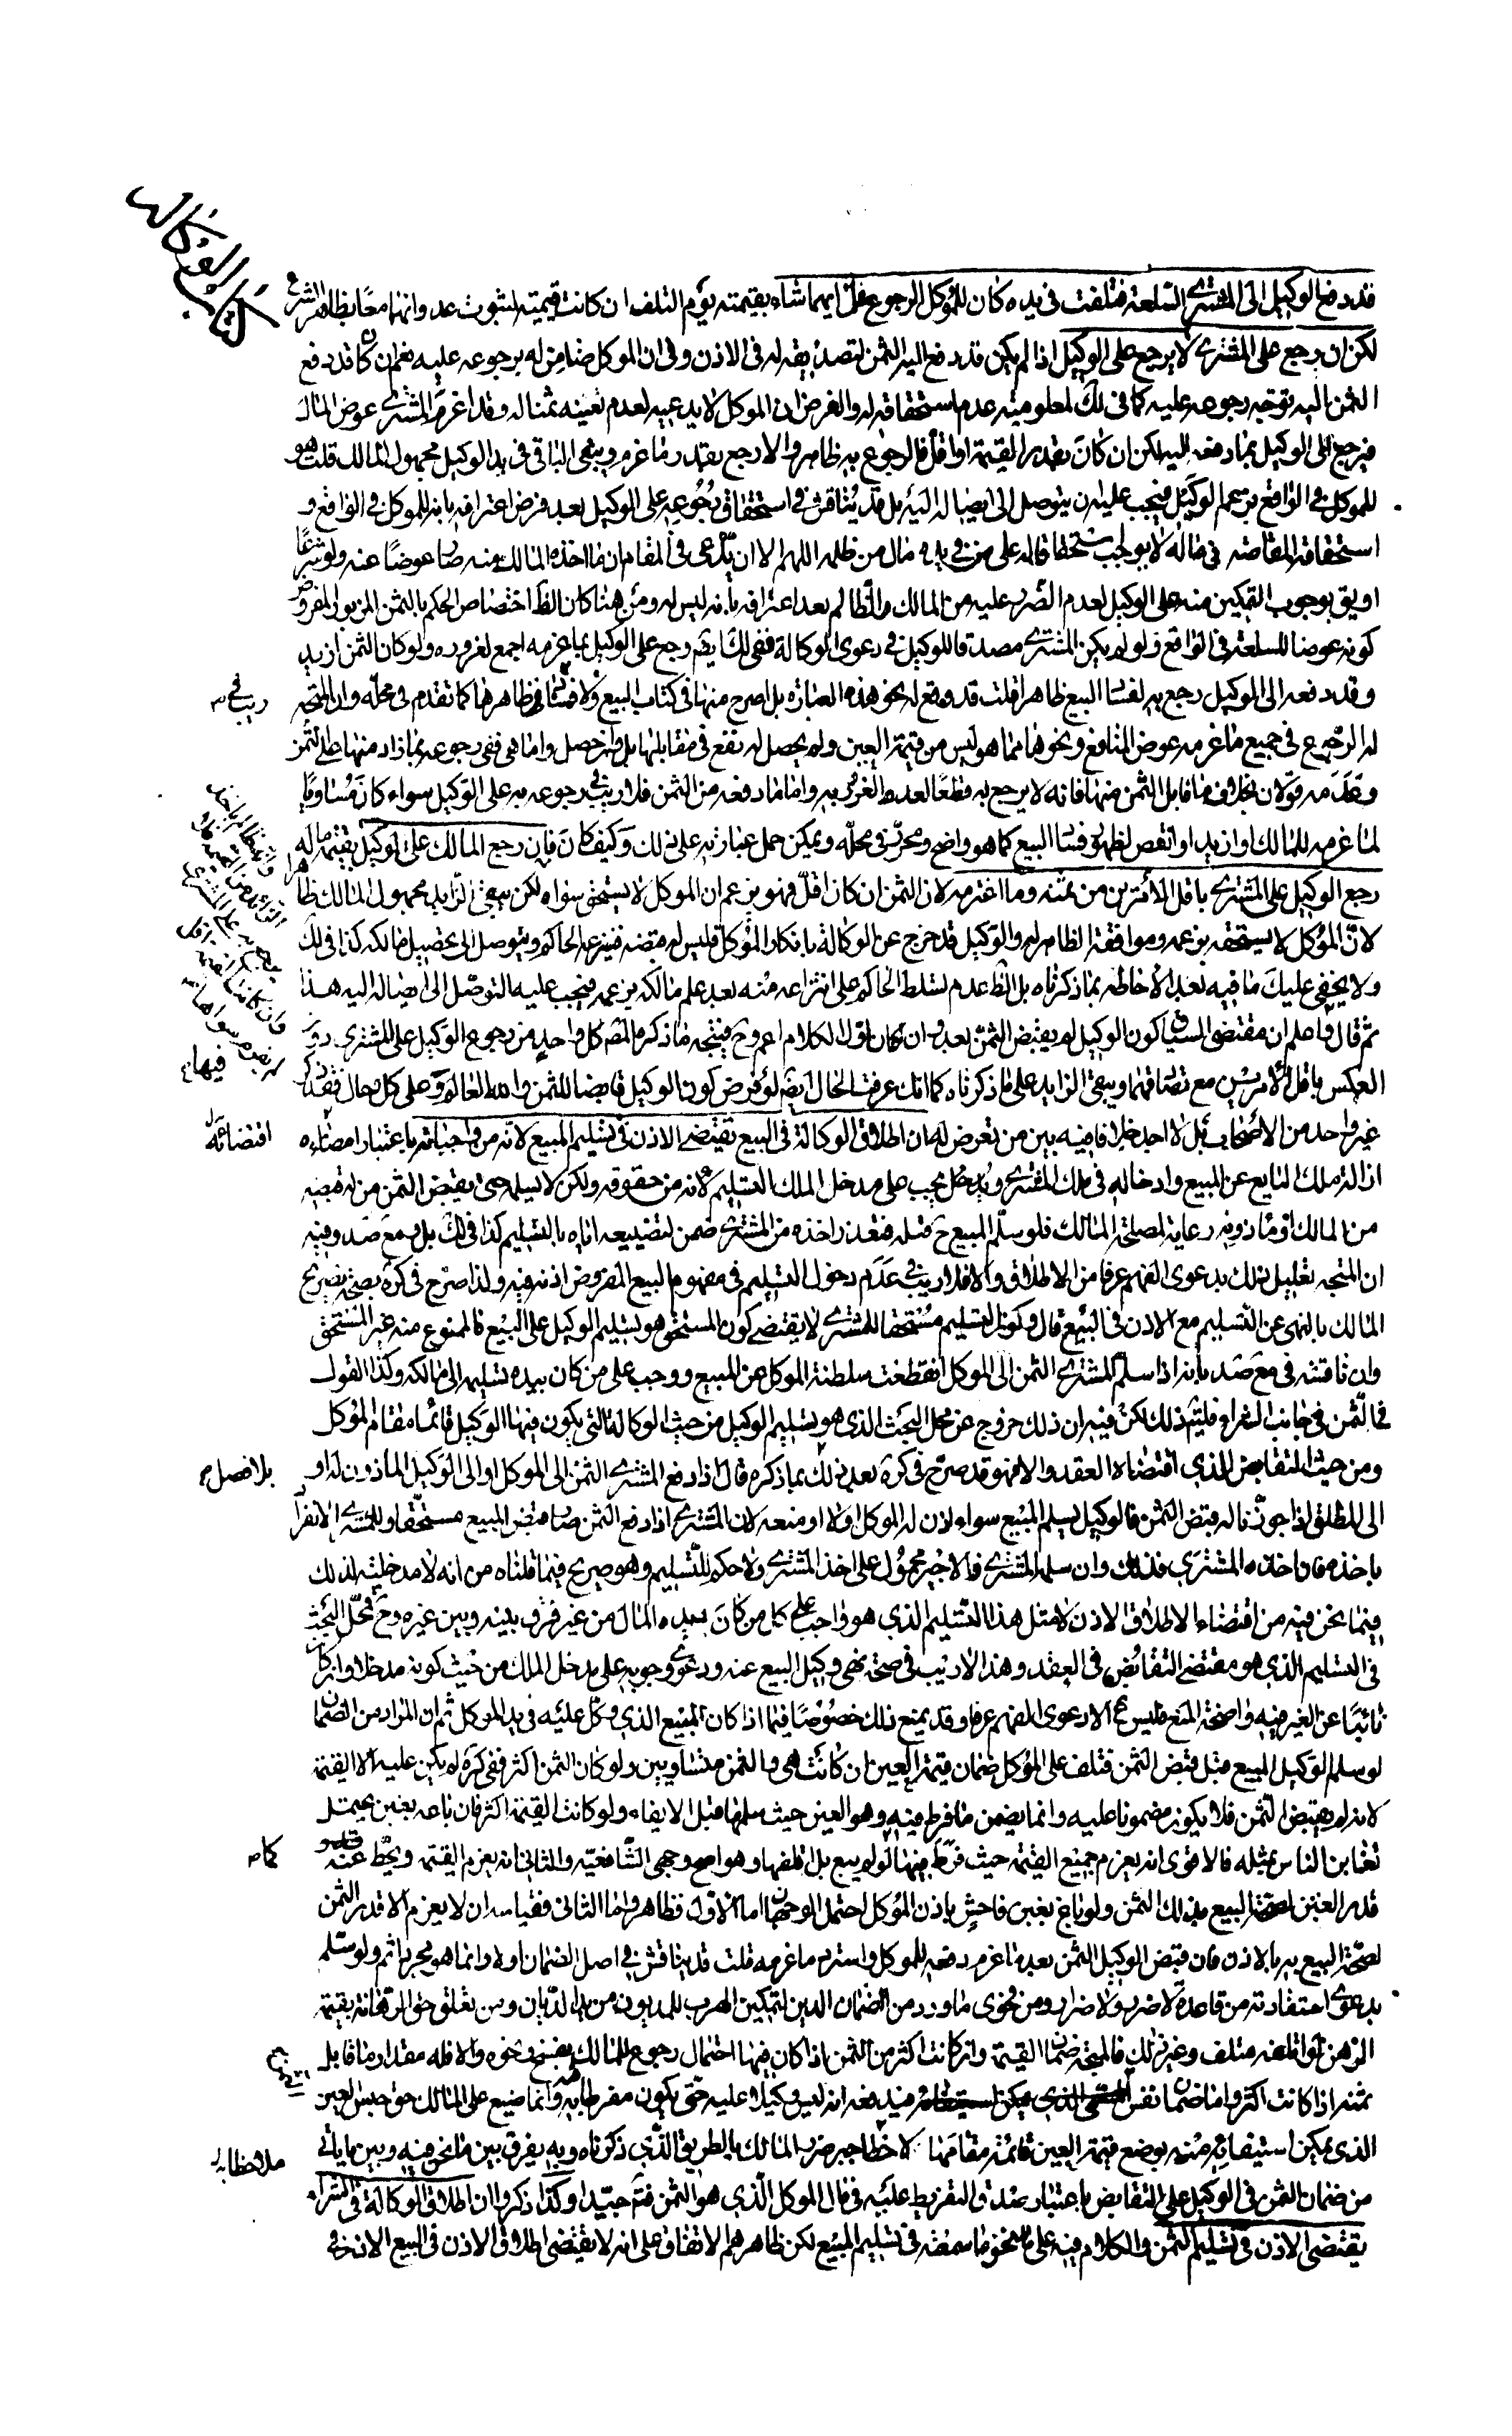 كتاب الوكالة
قد دفع الوكيل الى المشتري السلعة فتلفت في يده كان للموكل الرجوع على ايهما شاء بقيمته يوم التلف ان كانت قيميته لثبوت عدوانهما معا بظاهر الشرع
لكن ان رجع على المشتري لا يرجع على الوكيل اذا لم يكن قد دفع اليه الثمن لتصديقه له في الاذن وفي ان الموكل ظالم له برجوعه عليه نعم ان كان قد دفع
الثمن اليه توجه رجوعه عليه كما في لك لمعلومية عدم استحقاقه له والفرض ان الموكل لا يدعيه لعدم تعينه ثمنا له وقد اغرم المشتري عوض المال
فيرجع على الوكيل بما دفعه اليه لكن ان كان بقدر القيمة او اقل فالرجوع به ظاهر والا رجع بقدر ما غرم ويبقى الباقي في يد الوكيل مجهول المالك قلت هو
للموكل في الواقع بزعم الوكيل فيجب عليه ان يتوصل الى ايصاله اليه بل قد يناقش في استحقاق رجوعه على الوكيل بعد فرض اعترافه بانه للموكل في الواقع و
استحقاقه المقاصة في ماله لا يوجب استحقاقا له على من في يده مال من ظلمه اللهم الا ان يدعى في المقام ان ما اخذه المالك منه صار عوضا عنه ولو شرعا
او يق بوجوب التمكين منه على الوكيل لعدم الضرر عليه من المالك والظالم بعد اعترافه بانه ليس له ومن هنا كان الظ اختصاص الحكم بالثمن المزبور المفروض
كونه عوضا للسلعة في الواقع ولو لم يكن المشتري مصدقا للوكيل في دعوى الوكالة ففي لك ايضم رجع على الوكيل بما غرمه اجمع لغروره ولو كان الثمن ازيد
وقد دفعه الى الوكيل رجع به لفساد البيع ظاهرا قلت قد وقع له نحو هذه العبارة بل اصرح منها في كتاب البيع ولا في ظاهرها كما تقدم في محله وان المتجه
له الرجوع في جميع ما غرمه عوض المنافع ونحوها مما هو ليس من قيمة العين ولم يحصل له نفع في مقابلها بل وان حصل واما هي ففي رجوعه بما زاد منها على الثمن
وعدمه قولان بخلاف ما قابل الثمن منها فانه لا يرجع به قطعا لعدم الغرور به واما ما دفعه من الثمن فلا ريب في رجوعه به على الوكيل سواء كان مساويا
لما غرمه للمالك او ازيد او انقص لظهور فساد البيع كما هو واضح ومحرر في محله ويمكن حمل عبارته على ذلك وكيف كان فان رجع المالك على الوكيل بقيمة ماله
رجع الوكيل على المشتري باقل الامرين من ثمنه وما اغترمه لان الثمن ان كان اقل فهو يزعم ان الموكل لا يستحق سواه لكن يبقى الزايد مجهول المالك ظاهرا
لان الموكل لا يستحقه بزعمه وموافقة الظاهر له والوكيل قد خرج عن الوكالة بانكار الموكل فليس له قبضه فينزعه الحاكم ويتوصل الى تحصيل مالكه كذا في لك
ولا يخفى عليك ما فيه بعد الاحاطة بما ذكرناه بل الظ عدم تسلط الحاكم على انتزاعه منه بعد علم مالكه بزعمه فيجب عليه التوصل الى ايصاله اليه هذا
ثم قال واعلم ان مقتضى السياق كون الوكيل لم يقبض الثمن بعد وان كان اول الكلام اعم وح فيتجه ما ذكره المص كل واحد من رجوع الوكيل على المشتري دون
العكس باقل الامرين مع تصادقهما ويبقى الزايد على ما ذكرناه كما انك عرفت الحال ايضم لو فرض كون الوكيل قابضا للثمن والله العالم وعلى كل حال فقد ذكر
غير واحد من الاصحاب بل لا اجد خلافا فيه بين من تعرض له ان اطلاق الوكالة في البيع تقتضي الاذن في تسليم المبيع لانه من واجباته باعتبار امضاءه
ازالة ملك البايع عن المبيع وادخاله في ملك المشتري وبه يجب على مدخل الملك التسليم لانه من حقوقه ولكن لا يسلمه حتى يقبض الثمن من له قبضه
من المالك او ماذونه رعاية لمصلحة المالك فلو سلم المبيع ح قبله فتعذر اخذه من المشتري ضمن لتضييعه اياه بالتسليم كذا في لك بل وجمع صد وفيه
ان المتجه تعليل ذلك بدعوى الفهم عرفا من الاطلاق والا فلا ريب في عدم دخول التسليم في مفهوم البيع المفروض اذنه فيه ولذا صرح في كره بصحة تصريح
المالك بالنهي عن التسليم مع الاذن في البيع قال وكون التسليم مستحقا للمشتري لا يقتضي كون المستحق هو تسليم الوكيل على البيع فالممنوع منه غير المستحق
وان ناقشه في مع صد بانه اذا سلم المشتري الثمن الى الموكل انقطعت سلطنة الموكل عن المبيع ووجب على من كان بيده تسليمه الى مالكه وكذا القول
في الثمن في جانب الشراء فليتم ذلك لكن فيه ان ذلك خروج عن محل البحث الذي هو تسليم الوكيل من حيث الوكالة التي يكون فيها الوكيل قائما مقام الموكل
ومن حيث التقابض الذي اقتضاه العقد والا فهو قد صرح في كره بعد ذلك بما ذكره قال اذا دفع المشتري الثمن الى الموكل او الى الوكيل الماذون له او
الى المطلق اذا جوزنا له قبض الثمن فالوكيل يسلم المبيع سواء اذن له الموكل او لا او منعه لان المشتري اذا دفع الثمن صار قبض المبيع مستحقا وللمشتري الانفراد
باخذه فان اخذه المشتري فذلك وان سلمه المشتري فالاخير محمول على اخذ المشتري ولا حكم للتسليم وهو صريح فيما قلناه من انه لا مدخلية لذلك
فيما نحن فيه من اقتضاء الاطلاق الاذن لا مثل هذا التسليم الذي هو واجب على كل من كان بيده المال من غير فرق بينه وبين غيره وح فمحل البحث
في التسليم الذي هو مقتضى التقابض في العقد وهذا لا ريب في صحة نهي وكيل البيع عنه ودعوى وجوبه على مدخل الملك من حيث كونه مدخلا وان كان
نائبا عن الغير فيه واضحة المنع فليس ح الا دعوى الفهم عرفا وقد يمنع ذلك خصوصا فيما اذا كان المبيع الذي وكل عليه في يد الموكل ثم ان المراد من الضمان
لو سلم الوكيل المبيع قبل قبض الثمن فتلف على الموكل ضمان قيمة العين ان كانت هي والثمن متساويين ولو كان الثمن اكثر ففي كره لم يكن عليه الا القيمة
لانه لم يقبض الثمن فلا يكون مضمونا عليه وانما يضمن ما فرط فيه وهو العين حيث سلمها قبل الايفاء ولو كانت القيمة اكثر فان باعه بغبن يحتمل
تغابن الناس بمثله فالاقوى انه يغرم جميع القيمة حيث فرط فيها كما لو لم يبع بل اتلفها وهو اصح وجهي الشافعية والثاني انه يغرم القيمة ويحط عنه
قدر الغبن لصحة البيع بذلك الثمن ولو باع بغبن فاحش باذن الموكل احتمل الوجهان اما الاول فظاهر واما الثاني فقياسه ان لا يغرم الا قدر الثمن
لصحة البيع به بالاذن فان قبض الوكيل الثمن بعد ما غرم دفعه للموكل واسترد ما غرمه قلت قد يناقش في اصل الضمان اولا وانما هو مجرد اثم ولو سلم
بدعوى استفادته من قاعدة لا ضرر ولا ضرار ومن فحوى ما ورد من الضمان الدين لتمكين الهرب للمديون من يد الديان ومن تعلق حق الرهانة بقيمة
الرهن لو اتلفه متلف وغير ذلك فالمتجه ضمان القيمة وان كانت اكثر من الثمن اذا كان فيها احتمال رجوع المالك بفسخ ونحوه والا فله مقدار ما قابل
ثمنه اذا كانت اكثر واما ضمان نفس فيدفعه انه ليس وكيلا عليه حتى يكون مفرطا به وانما ضيع على المالك حق حبس العين
الذي يمكن استيفائه منه بوضع قيمة العين قائمة مقامها لا خطا جبر ضرر المالك بالطريق الذي ذكرناه وبه يفرق بين ما نحن فيه وبين ما ياتي
من ضمان الثمن في الوكيل على التقابض باعتبار صدق التفريط عليه في مال الموكل الذي هو الثمن فتم جيدا وكذا ذكروا ان اطلاق الوكالة في الشراء
يقتضي الاذن في تسليم الثمن والكلام فيه على نحو ما سمعته في تسليم المبيع لكن ظاهرهم الاتفاق على انه لا يقتضي اطلاق الاذن في البيع الاذن في
ريب في
فيها
اقتضائه
بلا فصل
كما
ملاحظا به